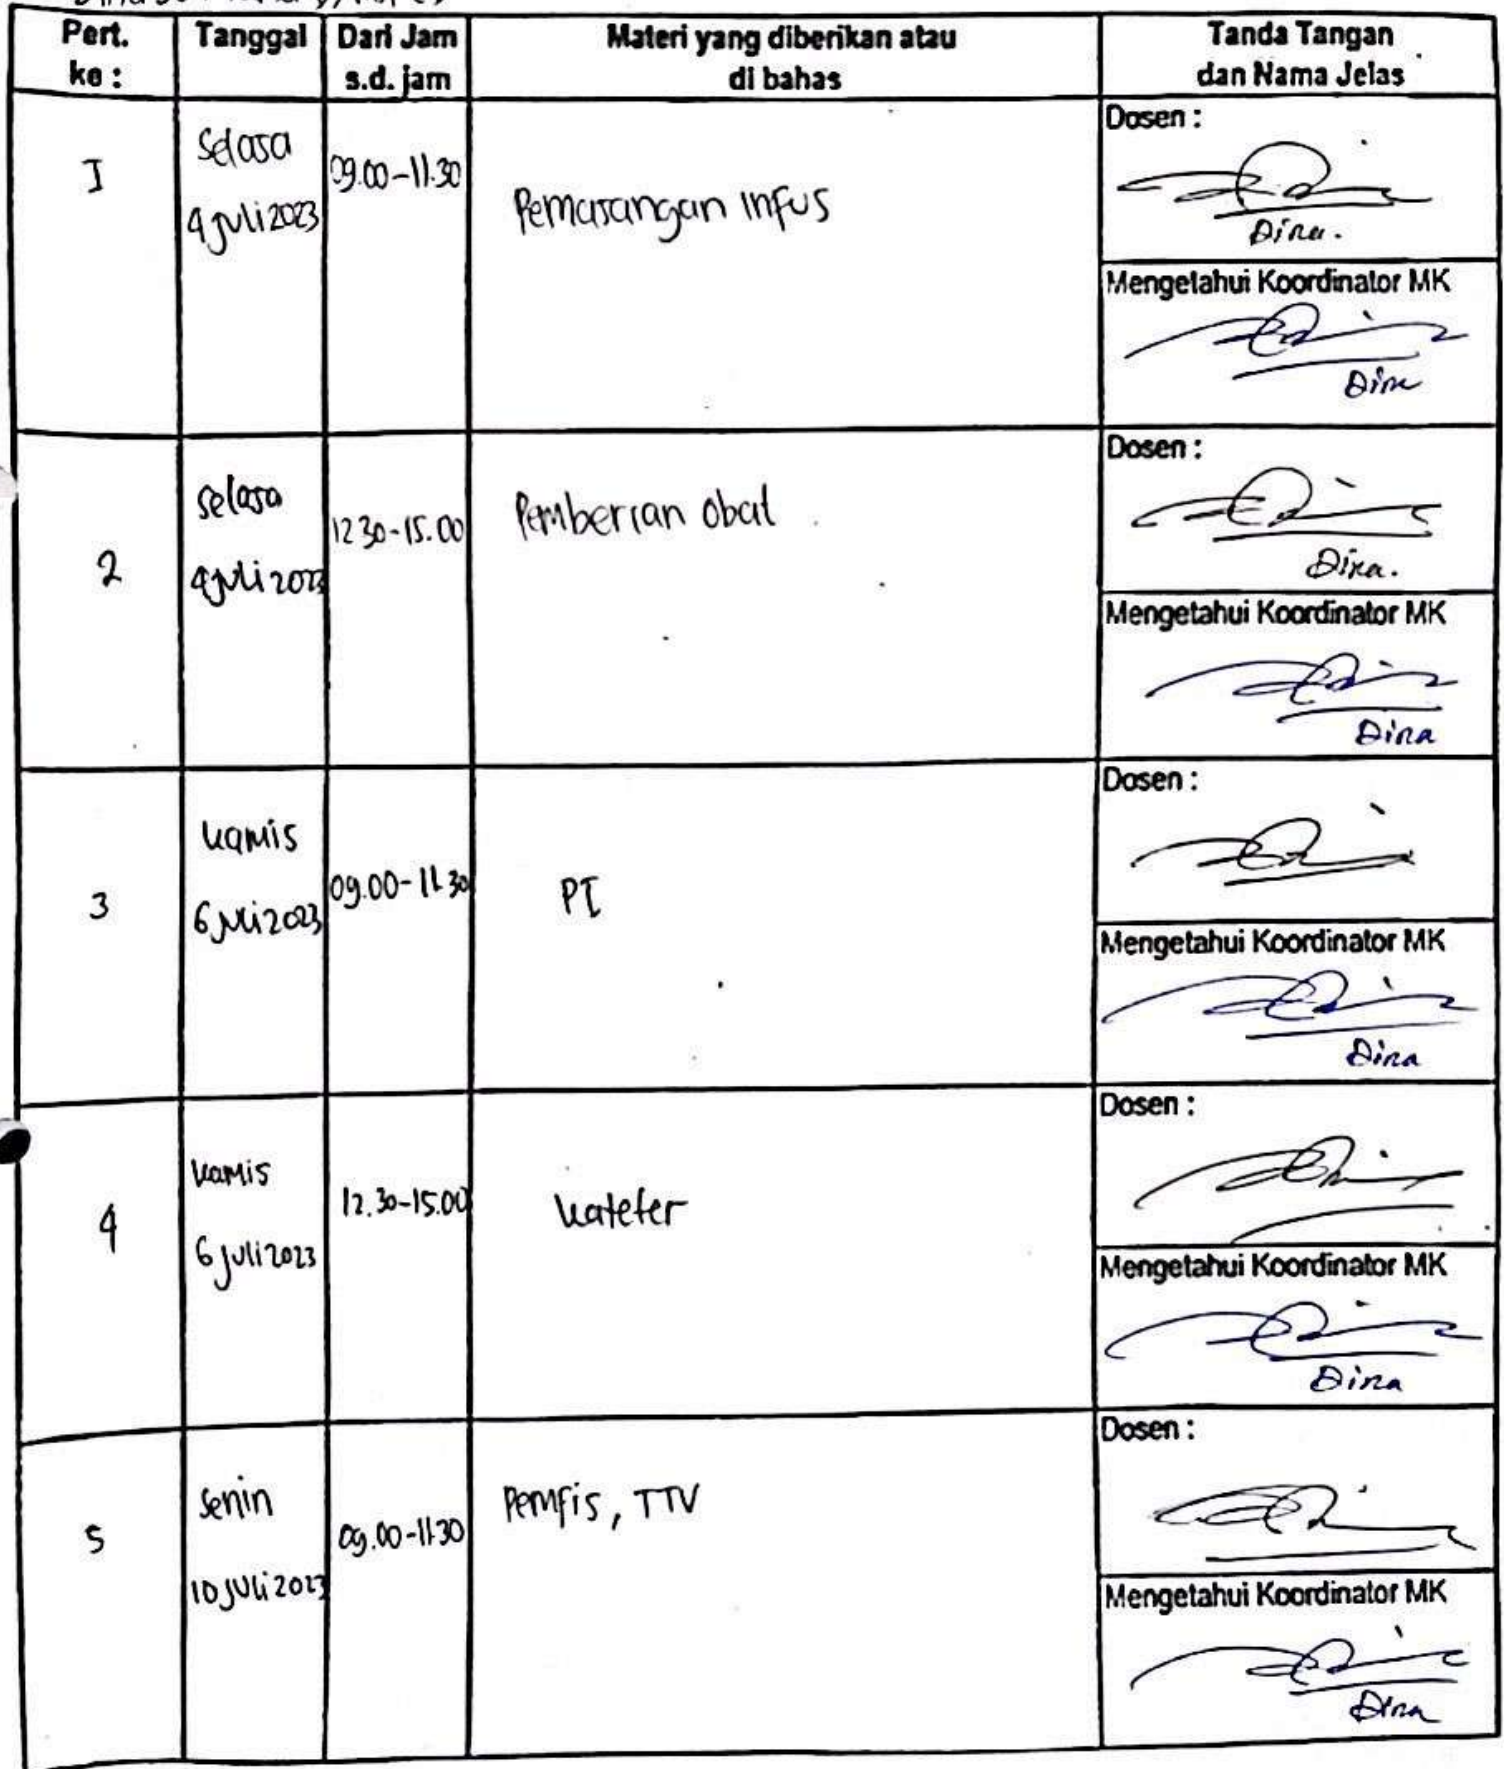 Pert. ke : Tanggal Dari Jam s.d. jam Materi yang diberikan atau di bahas Tanda Tangan dan Nama Jelas
I
Selasa
4 juli 2023
09.00-11.30
Pemasangan infus
Dosen :
Dina.
Mengetahui Koordinator MK
Dina
2
Selasa
4 juli 2023
12 30-15.00
Pemberian obat
Dosen :
Dina.
Mengetahui Koordinator MK
Dina
3
kamis
6 juli 2023
09.00-11.30
PI
Dosen :
Mengetahui Koordinator MK
Dina
4
kamis
6 juli 2023
12.30-15.00
kateter
Dosen :
Mengetahui Koordinator MK
Dina
5
Senin
10 juli 2023
09.00-11.30
Pemfis, TTV
Dosen :
Mengetahui Koordinator MK
Dina